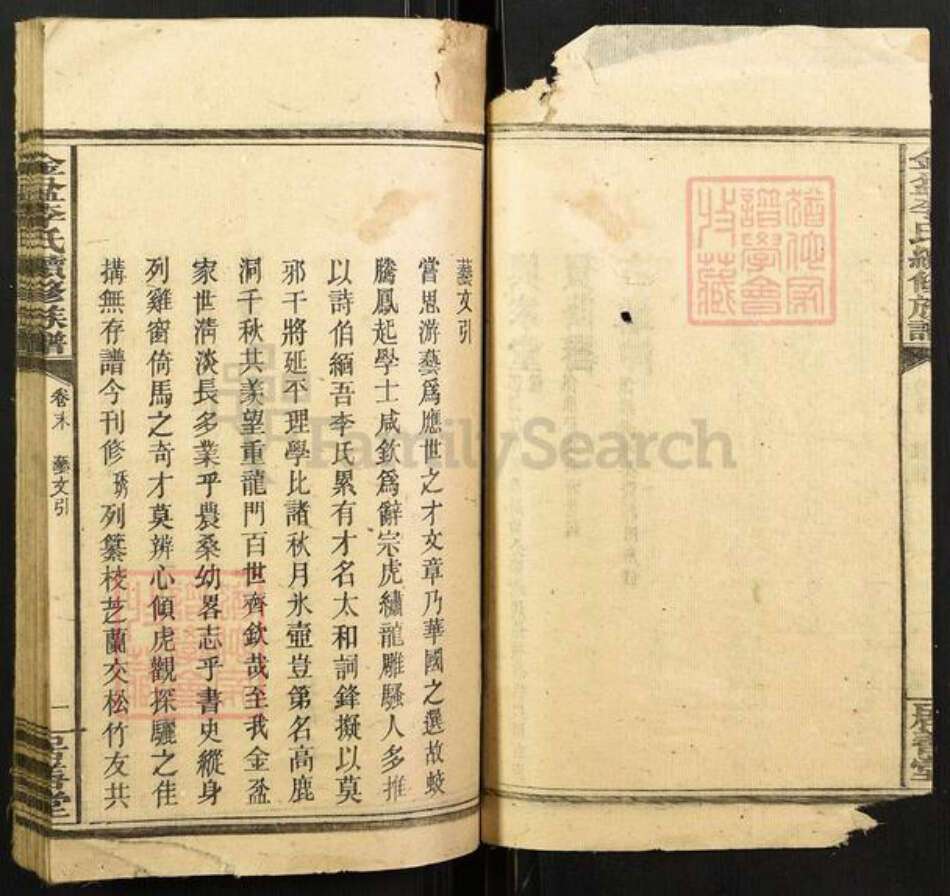 藝文引
嘗思游藝爲應世之才文章乃華國之選故蛟
騰鳳起學士咸欽爲辭宗虎繡龍雕騷人多推
以詩伯緬吾李氏累有才名太和詞鋒擬以莫
邪干將延平理學比諸秋月氷壺豈第名高鹿
洞千秋共羨望重龍門百世齊欽哉至我金盆
家世淸淡長多業乎農桑幼畧志乎書史縱身
列雞窗倚馬之奇才莫辨心傾虎觀探驪之佳
搆無存譜今刊修琇列纂校芝蘭交松竹友共
金盆李氏續修族譜
卷末
藝文引
一
金盆李氏續修族譜
FamilySearch
譜學會
收藏